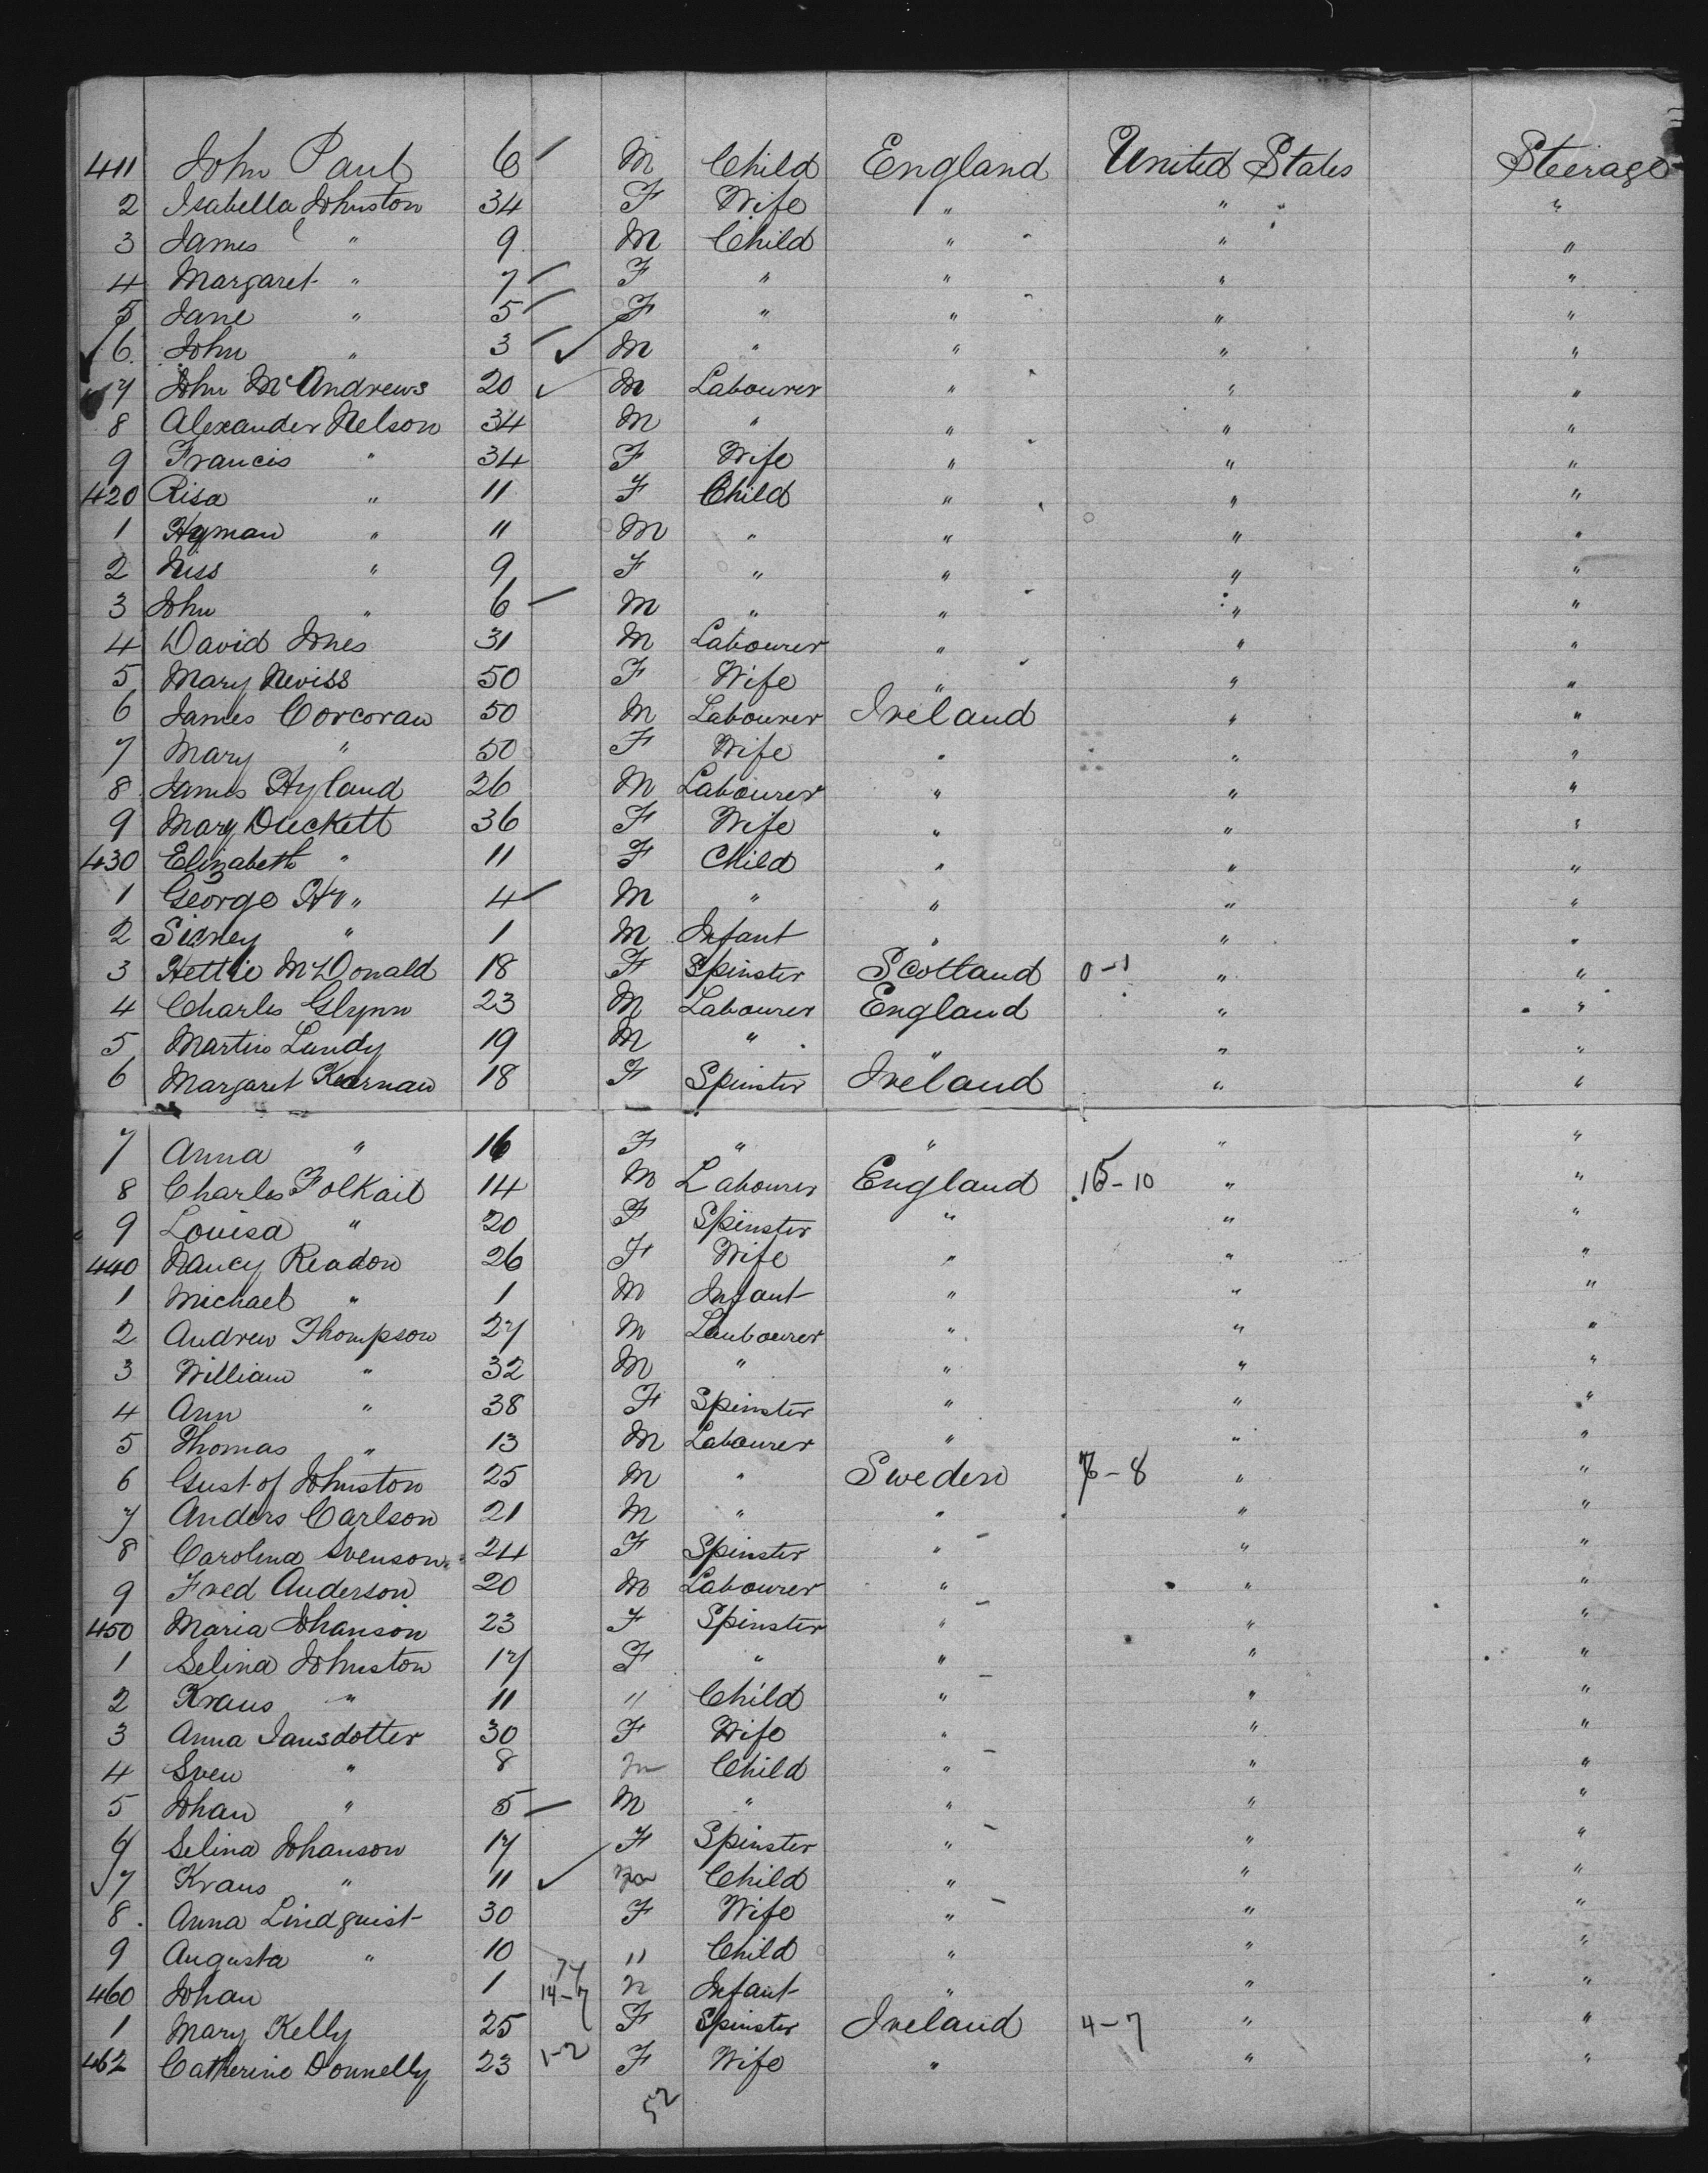 411 John Paul 6 M Child England United States Steerage
2 Isabella Johnston 34 F Wife " " "
3 James " 9 M Child " " "
4 Margaret " 7 F " " " "
5 Jane " 5 F " " " "
6 John " 3 M " " " "
7 John McAndrews 20 M Labourer " " "
8 Alexander Nelson 34 M " " " "
9 Francis " 34 F Wife " " "
420 Risa " 11 F Child " " "
1 Hyman " 11 M " " " "
2 Niss " 9 F " " " "
3 John " 6 M " " " "
4 David Jones 31 M Labourer " " "
5 Mary Neviss 50 F Wife " " "
6 James Corcoran 50 M Labourer Ireland " "
7 Mary " 50 F Wife " " "
8 James Hyland 26 M Labourer " " "
9 Mary Duckett 36 F Wife " " "
430 Elizabeth " 11 F Child " " "
1 George Hy " 4 M " " " "
2 Sidney " 1 M Infant " " "
3 Hettie McDonald 18 F Spinster Scotland 0-1 " "
4 Charles Glynn 23 M Labourer England " "
5 Martin Lundy 19 M " " " "
6 Margaret Kearnan 18 F Spinster Ireland " "
7 Anna " 16 F " " " "
8 Charles Folkail 14 M Labourer England 15-10 " "
9 Louisa " 20 F Spinster " " "
440 Nancy Readon 26 F Wife " " "
1 Michael " 1 M Infant " " "
2 Andrew Thompson 27 M Laubourer " " "
3 William " 32 M " " " "
4 Ann " 38 F Spinster " " "
5 Thomas " 13 M Labourer " " "
6 Gustof Johnston 25 M " Sweden 7-8 " "
7 Anders Carlson 21 M " " " "
8 Carolina Svenson 24 F Spinster " " "
9 Fred Anderson 20 M Labourer " " "
450 Maria Johanson 23 F Spinster " " "
1 Selina Johnston 17 F " " " "
2 Kraus " 11 " Child " " "
3 Anna Jansdotter 30 F Wife " " "
4 Sven " 8 m Child " " "
5 Johan " 5 M " " " "
6 Selina Johanson 17 F Spinster " " "
7 Kraus " 11 Child " " "
8 Anna Lindquist 30 F Wife " " "
9 Augusta " 10 " Child " " "
460 Johan 1 14-7 Infant " " "
1 Mary Kelly 25 F Spinster Ireland 4-7 " "
462 Catherine Donnelly 23 1-2 F Wife " " "
52